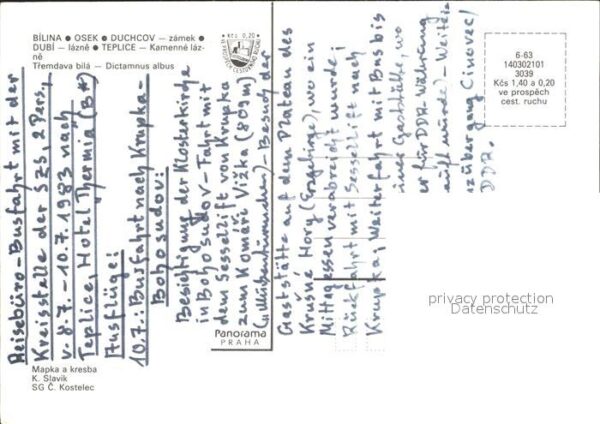 BÍLINA ● OSEK ● DUCHCOV — zámek ●
DUBÍ — lázně ● TEPLICE — Kamenné láz-
ně
Třemdava bílá — Dictamnus albus
Kčs 0,20
6-63
140302101
3039
Kčs 1,40 a 0,20
ve prospěch
cest. ruchu
Reisebüro-Busfahrt mit der
Kreisstelle der SZS, 2 Pers.,
v. 8.7.-10.7.1983 nach
Teplice, Hotel "Thermia (B*)
Ausflüge:
10.7.: Busfahrt nach Krupka-
Bohosudov:
Besichtigung der Klosterkirche
in Bohosudov-Fahrt mit
dem Sessellift von Krupka
zum Komáří Vížka (809m)
Besuch der
Gaststätte auf dem Plateau des
Krušné Hory (Erzgebirge), wo ein
Mittagessen verabreicht wurde;
Rückfahrt mit Sessellift nach
Krupka; Weiterfahrt mit Bus bis
Gaststätte, wo
er für DDR-Währung
wurde)-Weiter
übergang Cinovec/
DDR.
Panorama
PRAHA
Mapka a kresba
K. Slavík
SG Č. Kostelec
privacy protection
Datenschutz